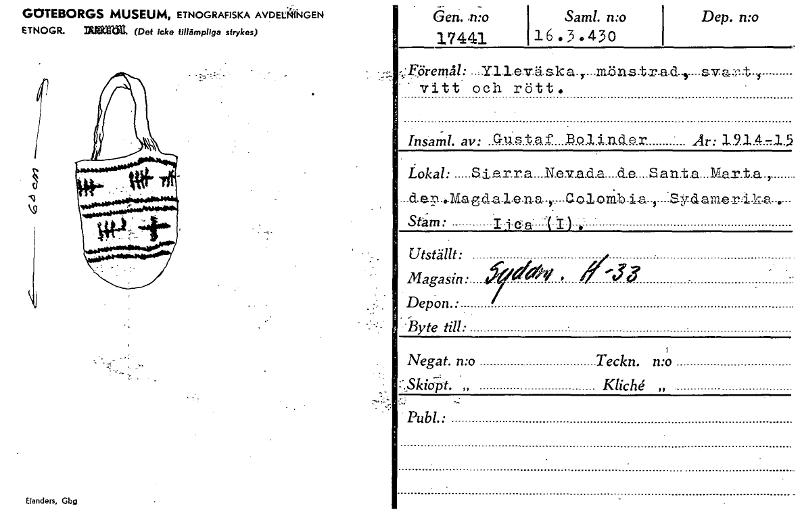 GÖTEBORGS MUSEUM, ETNOGRAFISKA AVDELNINGEN
ETNOGR. (Det icke tillämpliga strykes)
60 cm
Elanders, Gbg
Gen. n:o Saml. n:o Dep. n:o
17441 16.3.430
Föremål: Ylleväska, mönstrad, svart,
vitt och rött.
Insaml. av: Gustaf Bolinder År: 1914-15
Lokal: Sierra Nevada de Santa Marta,
dep. Magdalena, Colombia, Sydamerika.
Stam: Ijca (I).
Utställt:
Magasin: Sydam. H-33
Depon.:
Byte till:
Negat. n:o Teckn. n:o
Skiopt. „ Kliché „
Publ.: